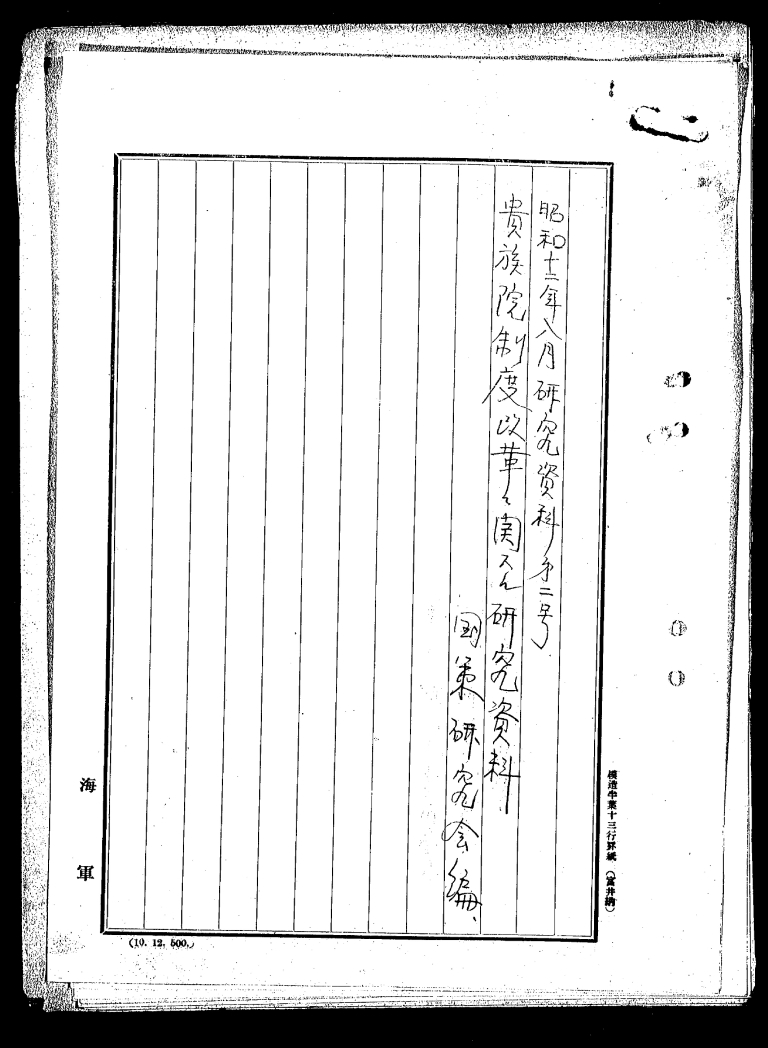 昭和十二年八月研究資料第二号
貴族院制度改革ニ関スル研究資料
国策研究会編、
模造半葉十三行罫紙(富井納)
海軍
(10. 12. 500.)